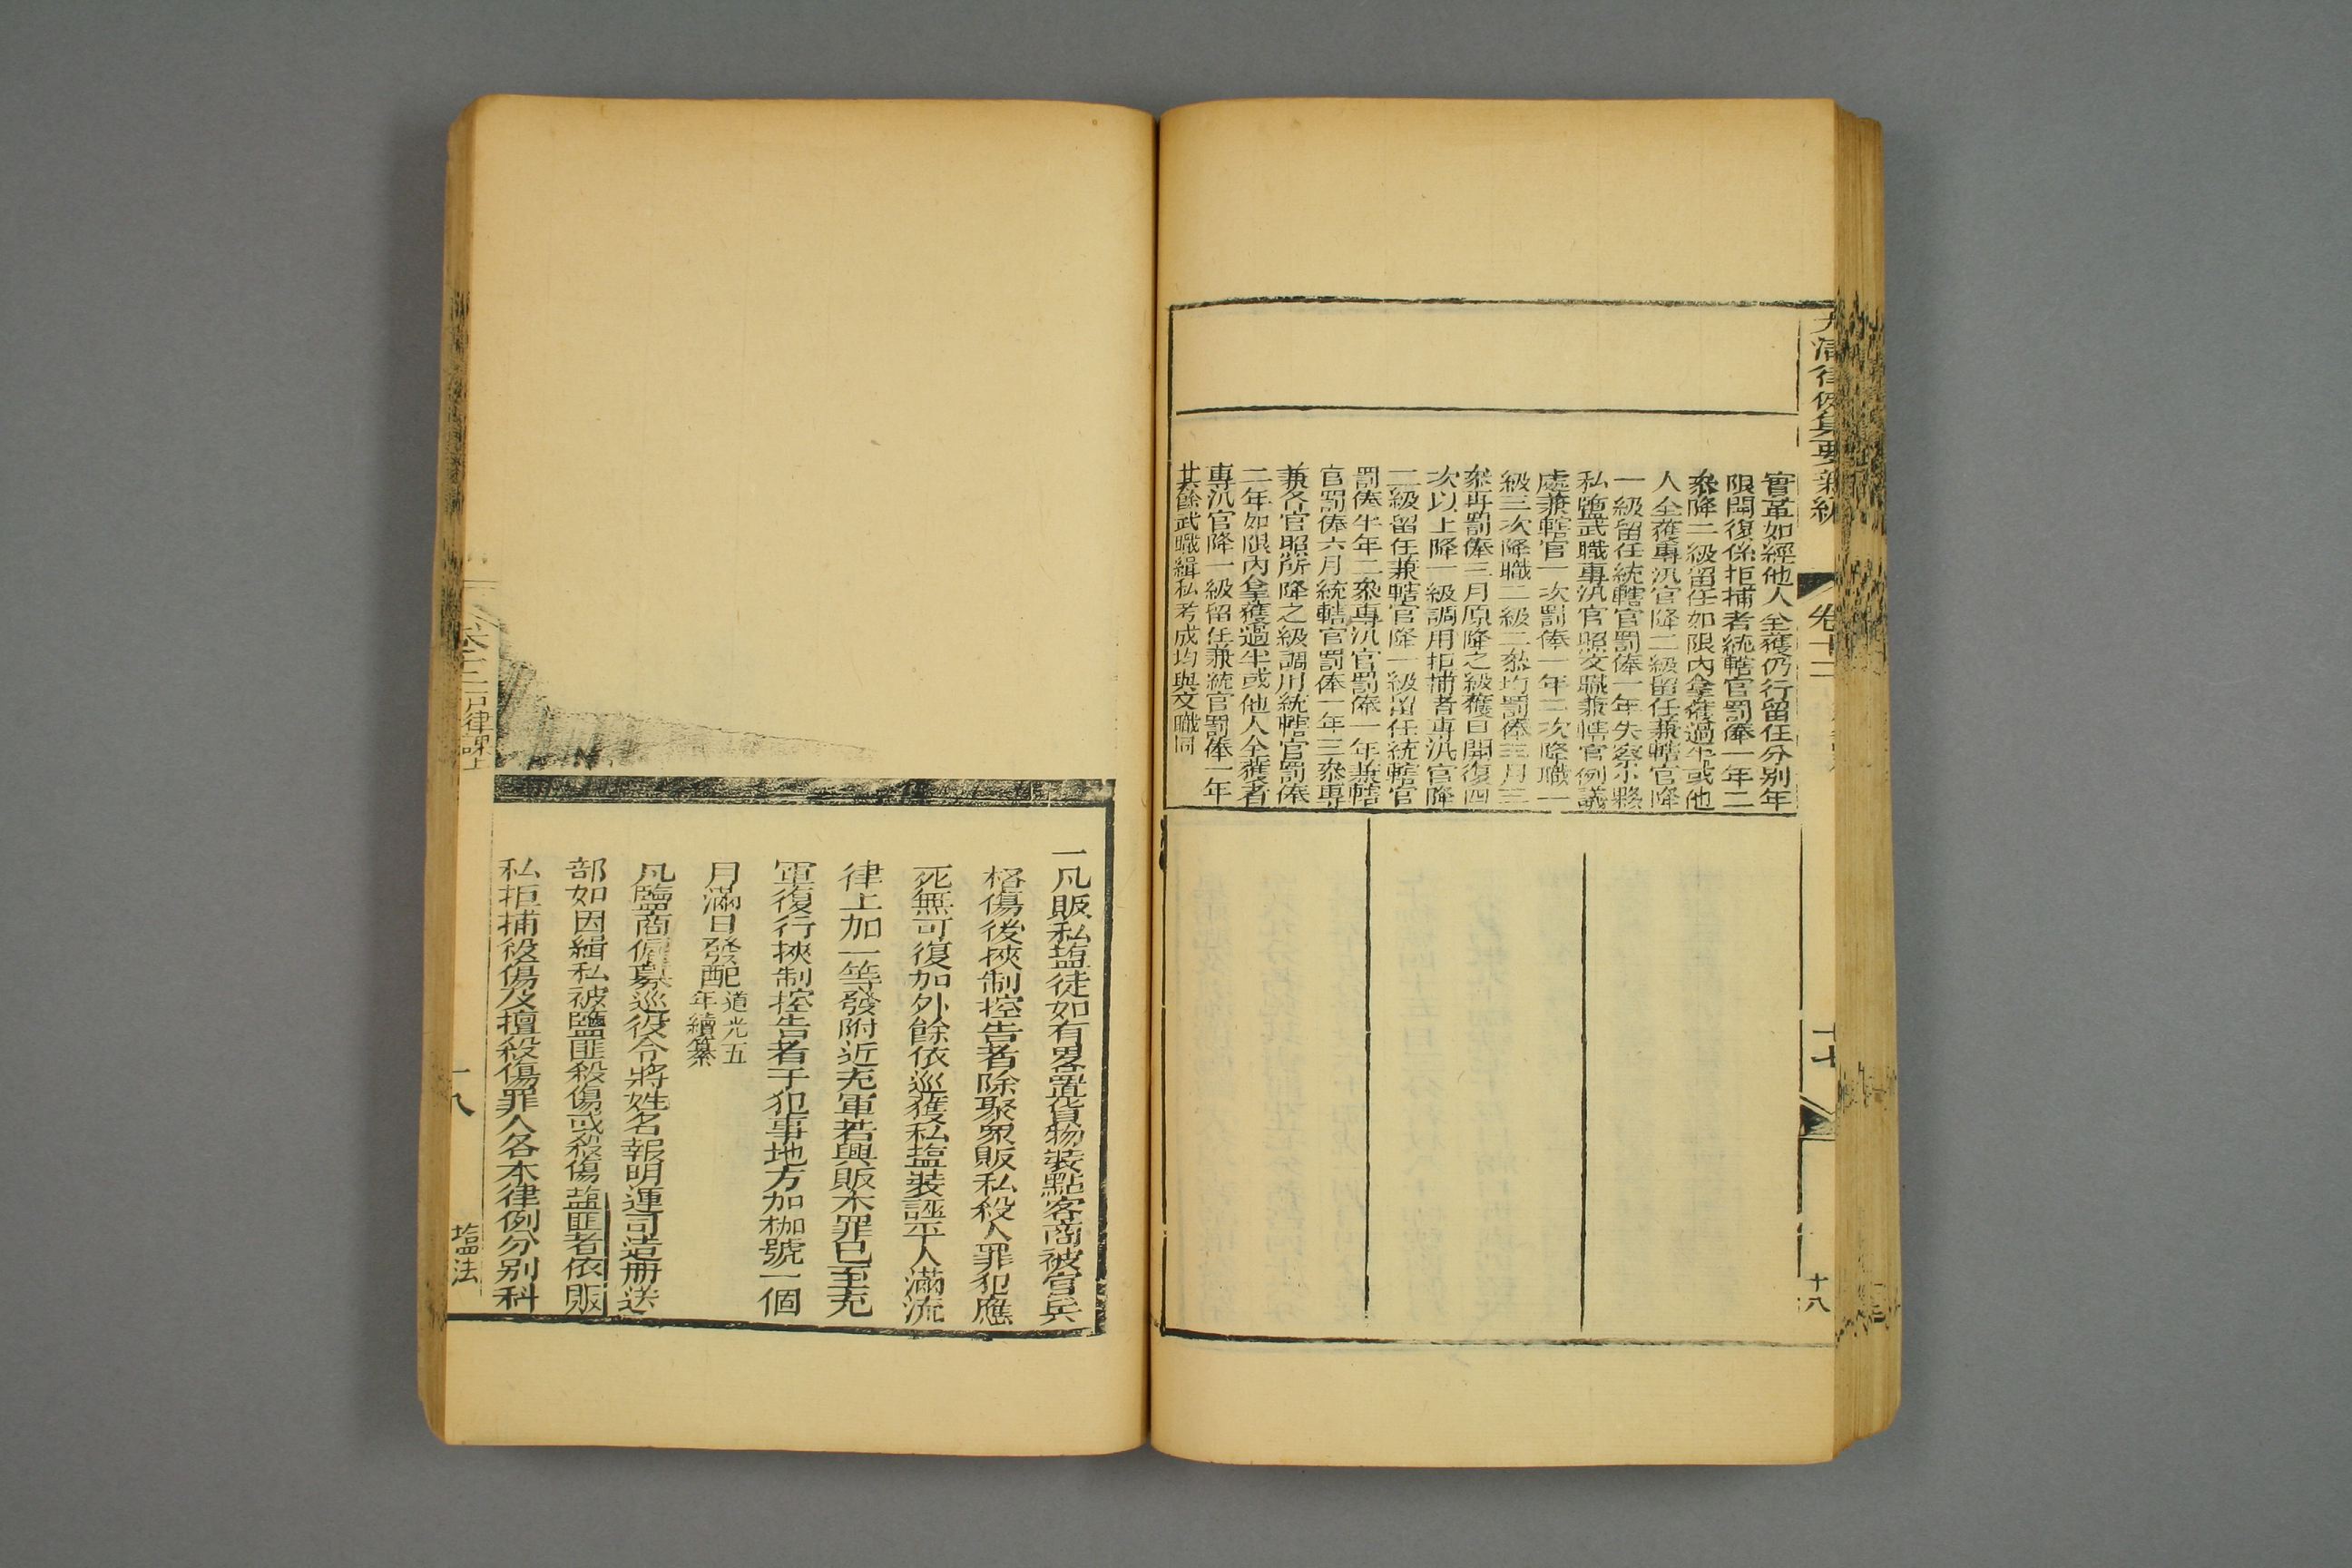 大清律例集要新編
卷十二
十七
十八
實革如經他人全獲仍行留任分別年
限開復係拒捕者統轄官罰俸一年二
叅降二級留任如限內拿獲過半或他
人全獲專汛官降二級留任兼轄官降
一級留任統轄官罰俸一年失察小夥
私鹽武職專汛官照文職兼轄官例議
處兼轄官一次罰俸一年二次降職一
級三次降職二級二叅均罰俸三月三
叅再罰俸三月原降之級獲日開復四
次以上降一級調用拒捕者專汛官降
二級留任兼轄官降一級留任統轄官
罰俸半年二叅專汛官罰俸一年兼轄
官罰俸六月統轄官罰俸一年三叅專
兼各官照所降之級調用統轄官罰俸
二年如限內拿獲過半或他人全獲者
專汛官降一級留任兼統官罰俸一年
其餘武職緝私考成均與文職同
一凡販私塩徒如有畧置貨物裝點客商被官兵
格傷後挾制控告者除聚眾販私殺人罪犯應
死無可復加外餘依巡獲私塩裝誣平人滿流
律上加一等發附近充軍若興販本罪已至充
軍復行挾制控告者于犯事地方加枷號一個
月滿日發配道光五
年續纂
凡鹽商僱募巡役令將姓名報明運司造册送
部如因緝私被鹽匪殺傷或殺傷塩匪者依販
私拒捕殺傷及擅殺傷罪人各本律例分别科
卷十二戶律課上
十八
塩法